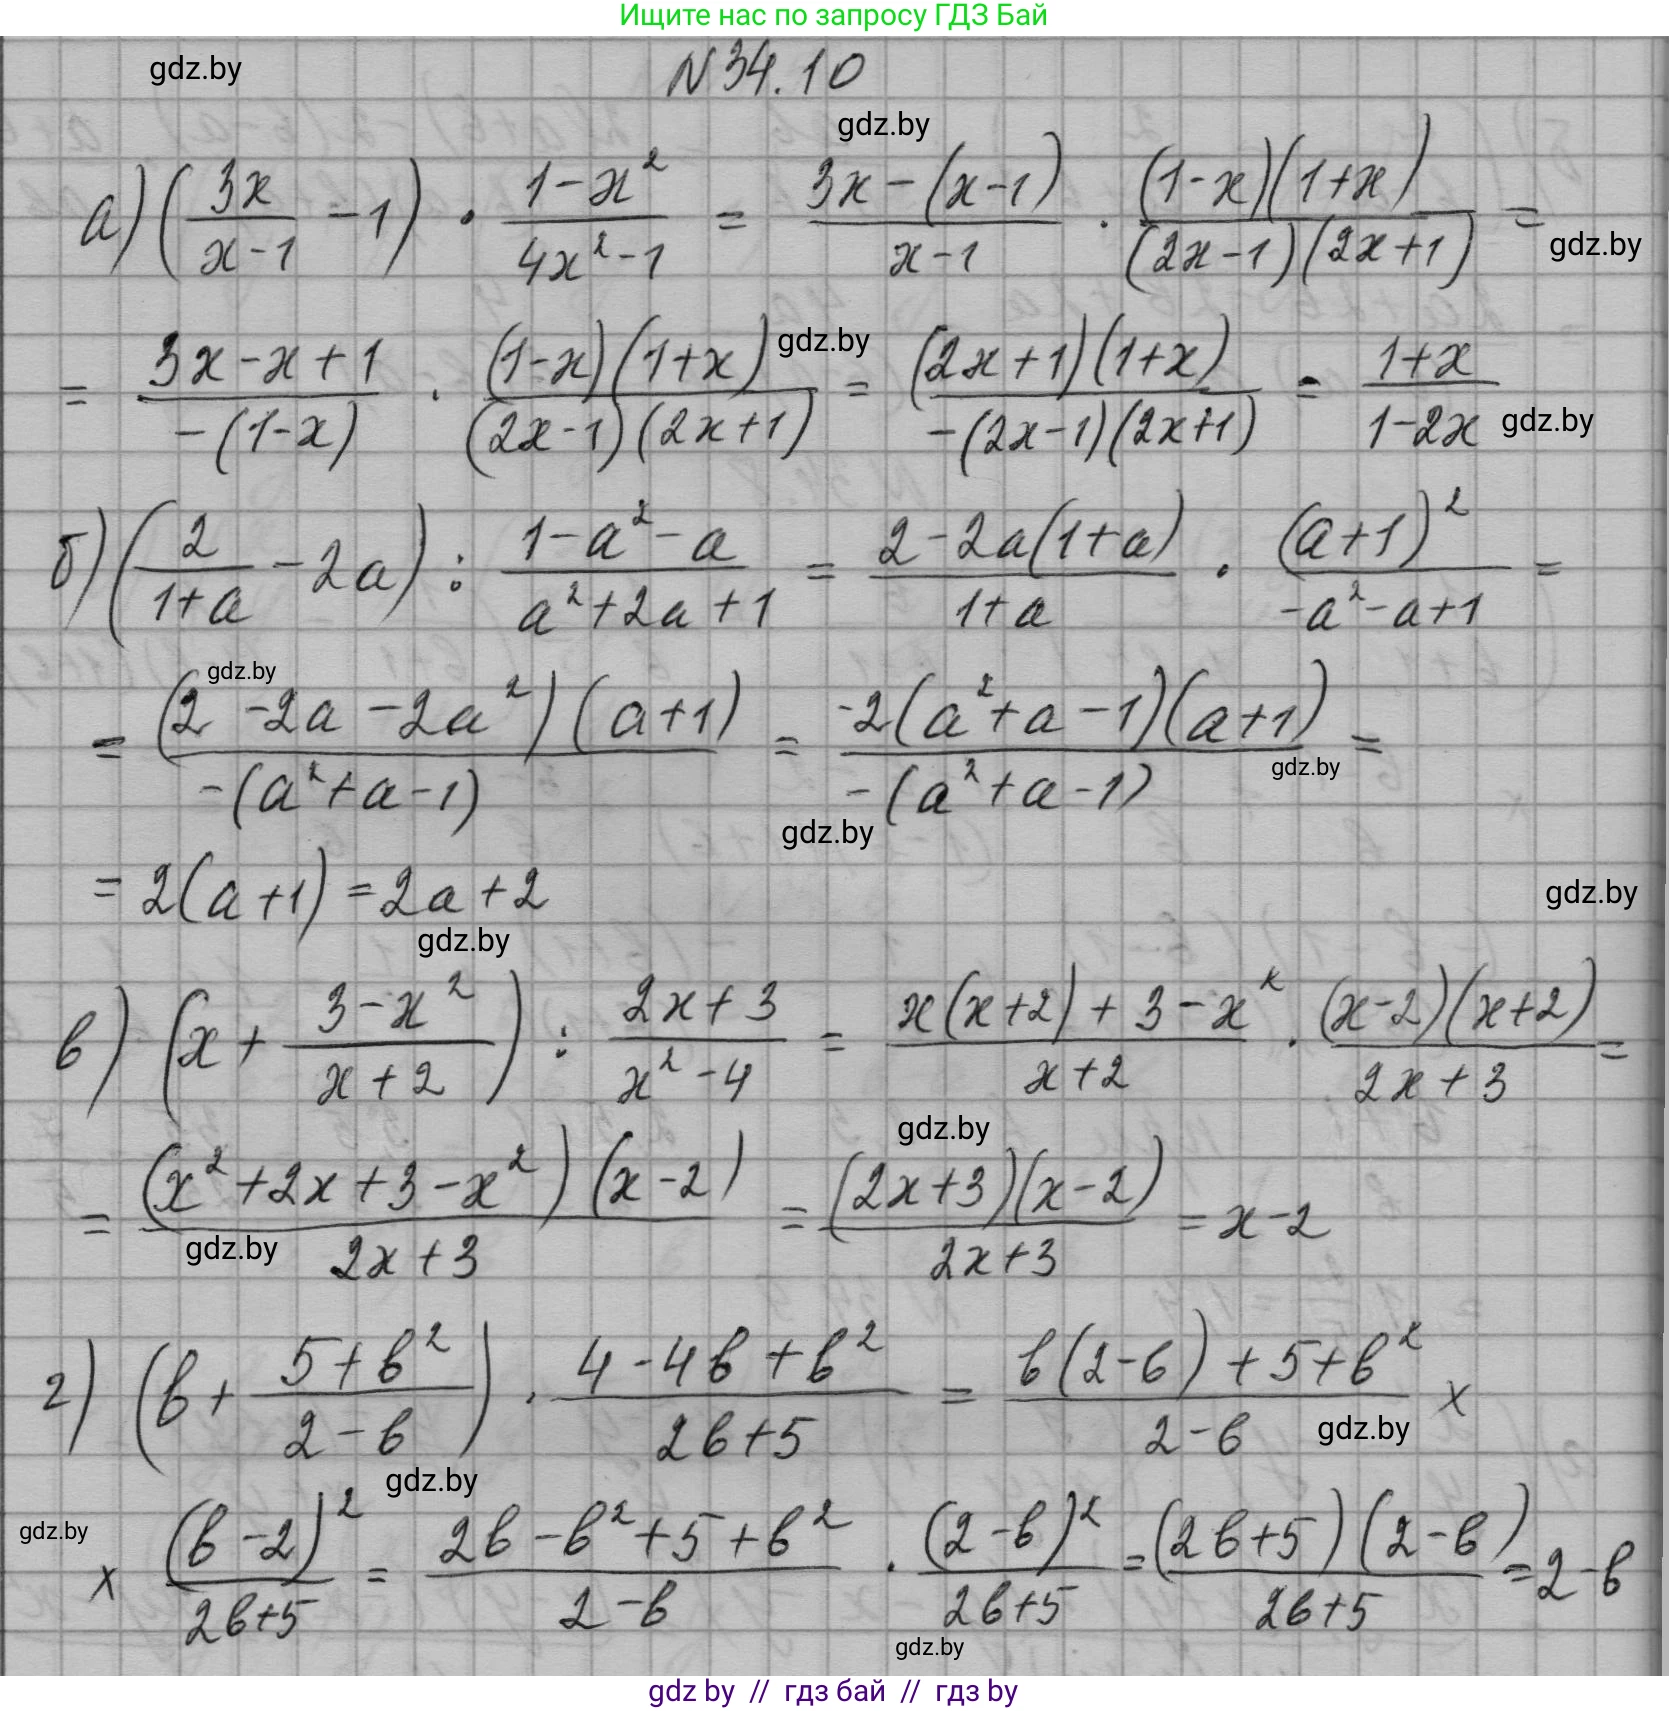 Ищите нас по запросу ГДЗ Бай
gdz.by
N 34.10
gdz.by
а) (3x/(x-1) - 1) · (1-x²)/(4x²-1) = (3x-(x-1))/(x-1) · ((1-x)(1+x))/((2x-1)(2x+1)) =
gdz.by
= (3x-x+1)/(-(1-x)) · ((1-x)(1+x))/((2x-1)(2x+1)) = ((2x+1)(1+x))/(-(2x-1)(2x+1)) = (1+x)/(1-2x)
gdz.by
gdz.by
б) (2/(1+a) - 2a) : (1-a²-a)/(a²+2a+1) = (2-2a(1+a))/(1+a) · (a+1)²/(-a²-a+1) =
gdz.by
= ((2-2a-2a²)(a+1))/(-(a²+a-1)) = (-2(a²+a-1)(a+1))/(-(a²+a-1)) =
gdz.by
gdz.by
= 2(a+1) = 2a+2
gdz.by
gdz.by
в) (x + (3-x²)/(x+2)) : (2x+3)/(x²-4) = (x(x+2)+3-x²)/(x+2) · ((x-2)(x+2))/(2x+3) =
gdz.by
= ((x²+2x+3-x²)(x-2))/(2x+3) = ((2x+3)(x-2))/(2x+3) = x-2
gdz.by
г) (b + (5+b²)/(2-b)) · (4-4b+b²)/(2b+5) = (b(2-b)+5+b²)/(2-b) ×
gdz.by
gdz.by
gdz.by
× (b-2)²/(2b+5) = (2b-b²+5+b²)/(2-b) · (2-b)²/(2b+5) = ((2b+5)(2-b))/(2b+5) = 2-b
gdz.by
gdz by // гдз бай // гдз by